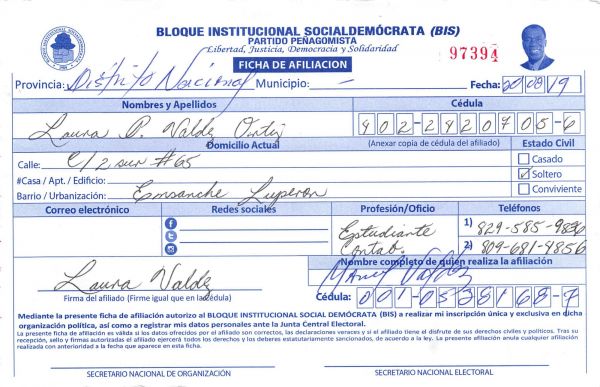 BLOQUE INSTITUCIONAL SOCIALDEMÓCRATA (BIS)
PARTIDO PEÑAGOMISTA
Libertad, Justicia, Democracia y Solidaridad
97394
FICHA DE AFILIACION
Provincia: Distrito Nacional Municipio: — Fecha: 20/08/19
Nombres y Apellidos Cédula
Laura P. Valdez Ortiz 402-2420705-6
Domicilio Actual (Anexar copia de cédula del afiliado) Estado Civil
Calle: C/2 sur #65 Casado
#Casa / Apt. / Edificio: Soltero
Barrio / Urbanización: Ensanche Luperon Conviviente
Correo electrónico Redes sociales Profesión/Oficio Teléfonos
Estudiante 1) 829-585-9836
Contab. 2) 809-681-4856
Nombre completo de quién realiza la afiliación
Laura Valdez Valdez
Firma del afiliado (Firme igual que en la cédula)
Cédula: 001-0538168-7
Mediante la presente ficha de afiliación autorizo al BLOQUE INSTITUCIONAL SOCIAL DEMÓCRATA (BIS) a realizar mi inscripción única y exclusiva en dicha
organización política, así como a registrar mis datos personales ante la Junta Central Electoral.
La presente ficha de afiliación es válida si los datos ofrecidos por el afiliado son correctos, las declaraciones veraces y si el afiliado tiene el disfrute de sus derechos civiles y políticos. Tras su
recepción, sello y firmas autorizadas el afiliado ejercerá todos los derechos y los deberes estatutariamente sancionados, de acuerdo a la ley. La presente afiliación anula cualquier afiliación
realizada con anterioridad a la fecha que aparece en esta ficha.
SECRETARIO NACIONAL DE ORGANIZACIÓN SECRETARIO NACIONAL ELECTORAL